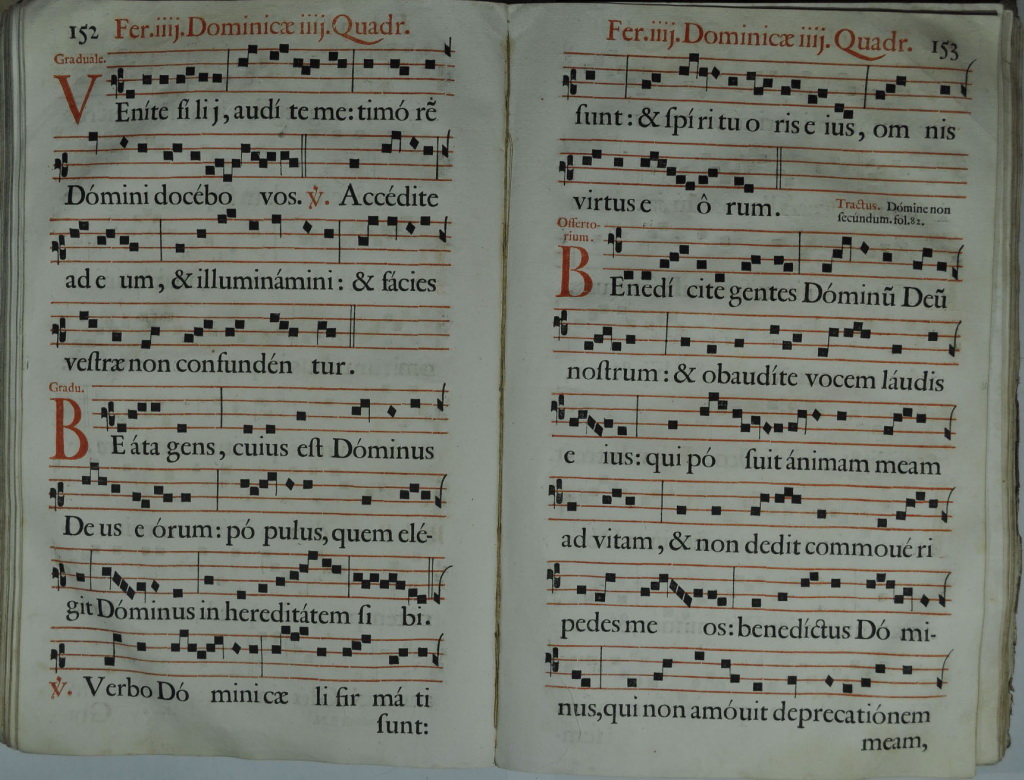 152 Fer.iiij.Dominicæ iiij.Quadr.
Graduale.
VEníte fi li j, audí te me: timó rē̃
Dómini docébo vos. ℣. Accédite
ad e um, & illuminámini: & fácies
veſtræ non confundén tur.
Gradu.
BEáta gens, cuius eſt Dóminus
De us e órum: pó pulus, quem elé-
git Dóminus in hereditátem ſi bi.
℣. Verbo Dó mini cæ li fir má ti
ſunt:
Fer.iiij.Dominicæ iiij.Quadr. 153
ſunt: & ſpí ri tu o ris e ius, om nis
virtus e ô rum.
Tractus. Dómine non
ſecúndum. fol.82.
Offerto-
rium.
BEnedí cite gentes Dóminũ Deũ
noſtrum: & obaudíte vocem láudis
e ius: qui pó ſuit ánimam meam
ad vitam, & non dedit commoué ri
pedes me os: benedíctus Dó mi-
nus, qui non amóuit deprecatiónem
meam,